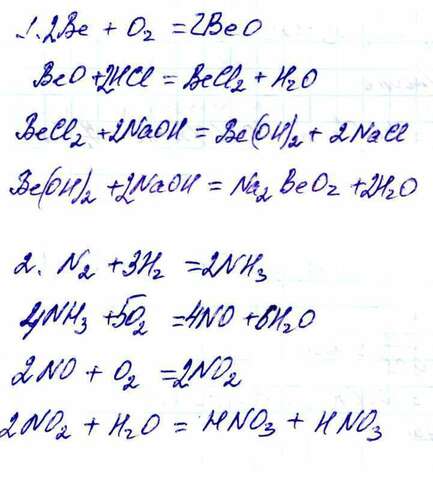 1. 2Be + O2 = 2BeO
BeO + 2HCl = BeCl2 + H2O
BeCl2 + 2NaOH = Be(OH)2 + 2NaCl
Be(OH)2 + 2NaOH = Na2BeO2 + 2H2O
2. N2 + 3H2 = 2NH3
4NH3 + 5O2 = 4NO + 6H2O
2NO + O2 = 2NO2
2NO2 + H2O = HNO3 + HNO3